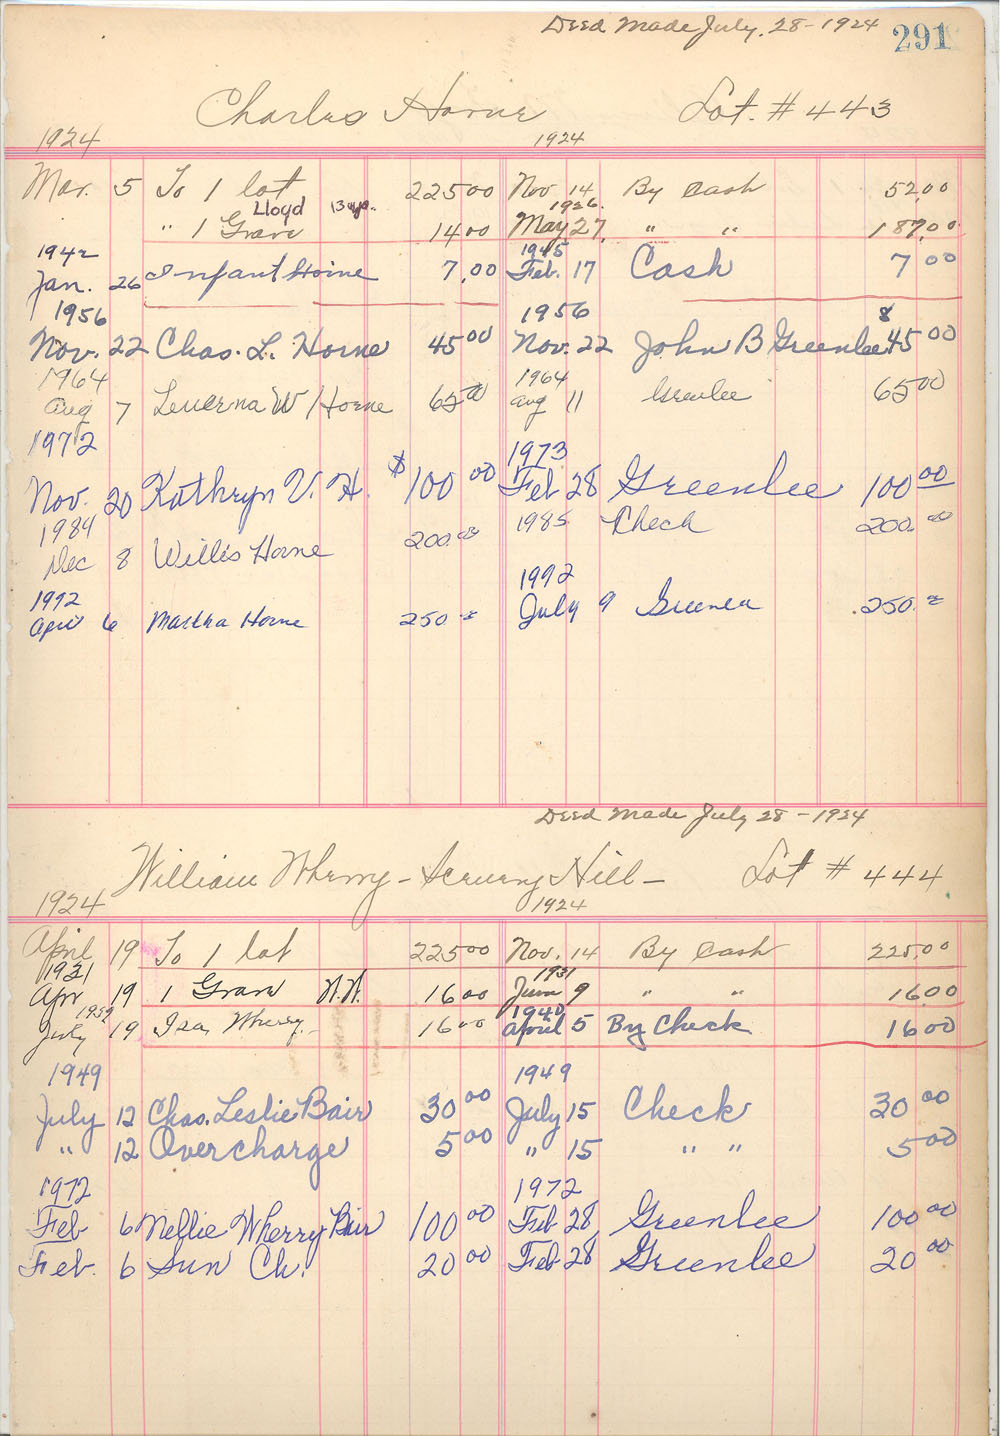 Deed Made July. 28 - 1924 291
Charles Horne Lot. # 443
1924 1924
Mar. 5 To 1 lot 225 00 Nov. 14 By Cash 52.00
Lloyd 13 yr. 1926.
" 1 Grave 14 00 May 27, " " 187.00
1942 1945
Jan. 26 Infant Horne 7.00 Feb. 17 Cash 7 00
1956 1956 8
Nov. 22 Chas. L. Horne 45 00 Nov. 22 John B Greenlee 45 00
1964 1964
Aug 7 Lucerna W Horne 65 00 Aug 11 Greenlee 65 00
1972 1973
Nov. 20 Kathryn V. H. $100 00 Feb 28 Greenlee 100 00
1984 1985 Check 200.00
Dec 8 Willis Horne 200.00
1992 1992
April 6 Martha Horne 250.= July 9 .250.=
Deed Made July 28 - 1924
William Wherry - Hill - Lot # 444
1924 1924
April 19 To 1 lot 225 00 Nov. 14 By Cash 225.00
1931 1931
Apr 19 1 Grave 16 00 June 9 " " 16.00
1939 1940
July 19 Isa, Wherry 16 00 April 5 By Check 16 00
1949 1949
July 12 Chas. Leslie Bair 30 00 July 15 Check 30 00
" 12 Overcharge 5 00 " 15 " " 5 00
1972 1972
Feb 6 Nellie Wherry Bair 100 00 Feb 28, Greenlee 100 00
Feb. 6 Sun Ch. 20 00 Feb 28 Greenlee 20 00